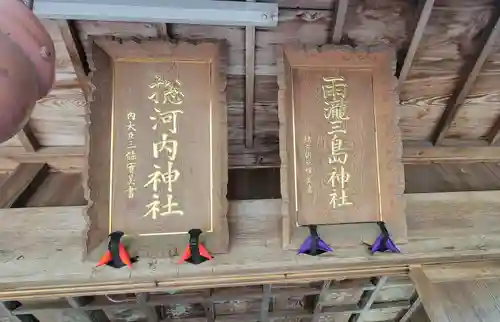 雨瀧三島神社
総河内神社
内大臣三條實美書